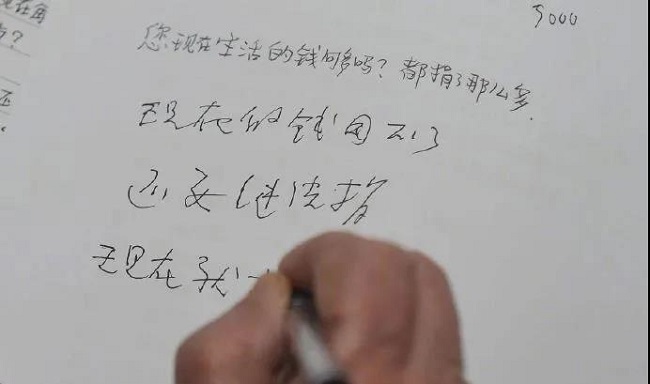 5000
您现在生活的钱够吗？都捐了那么多.
现在的钱用不了
还要继续捐
现在我